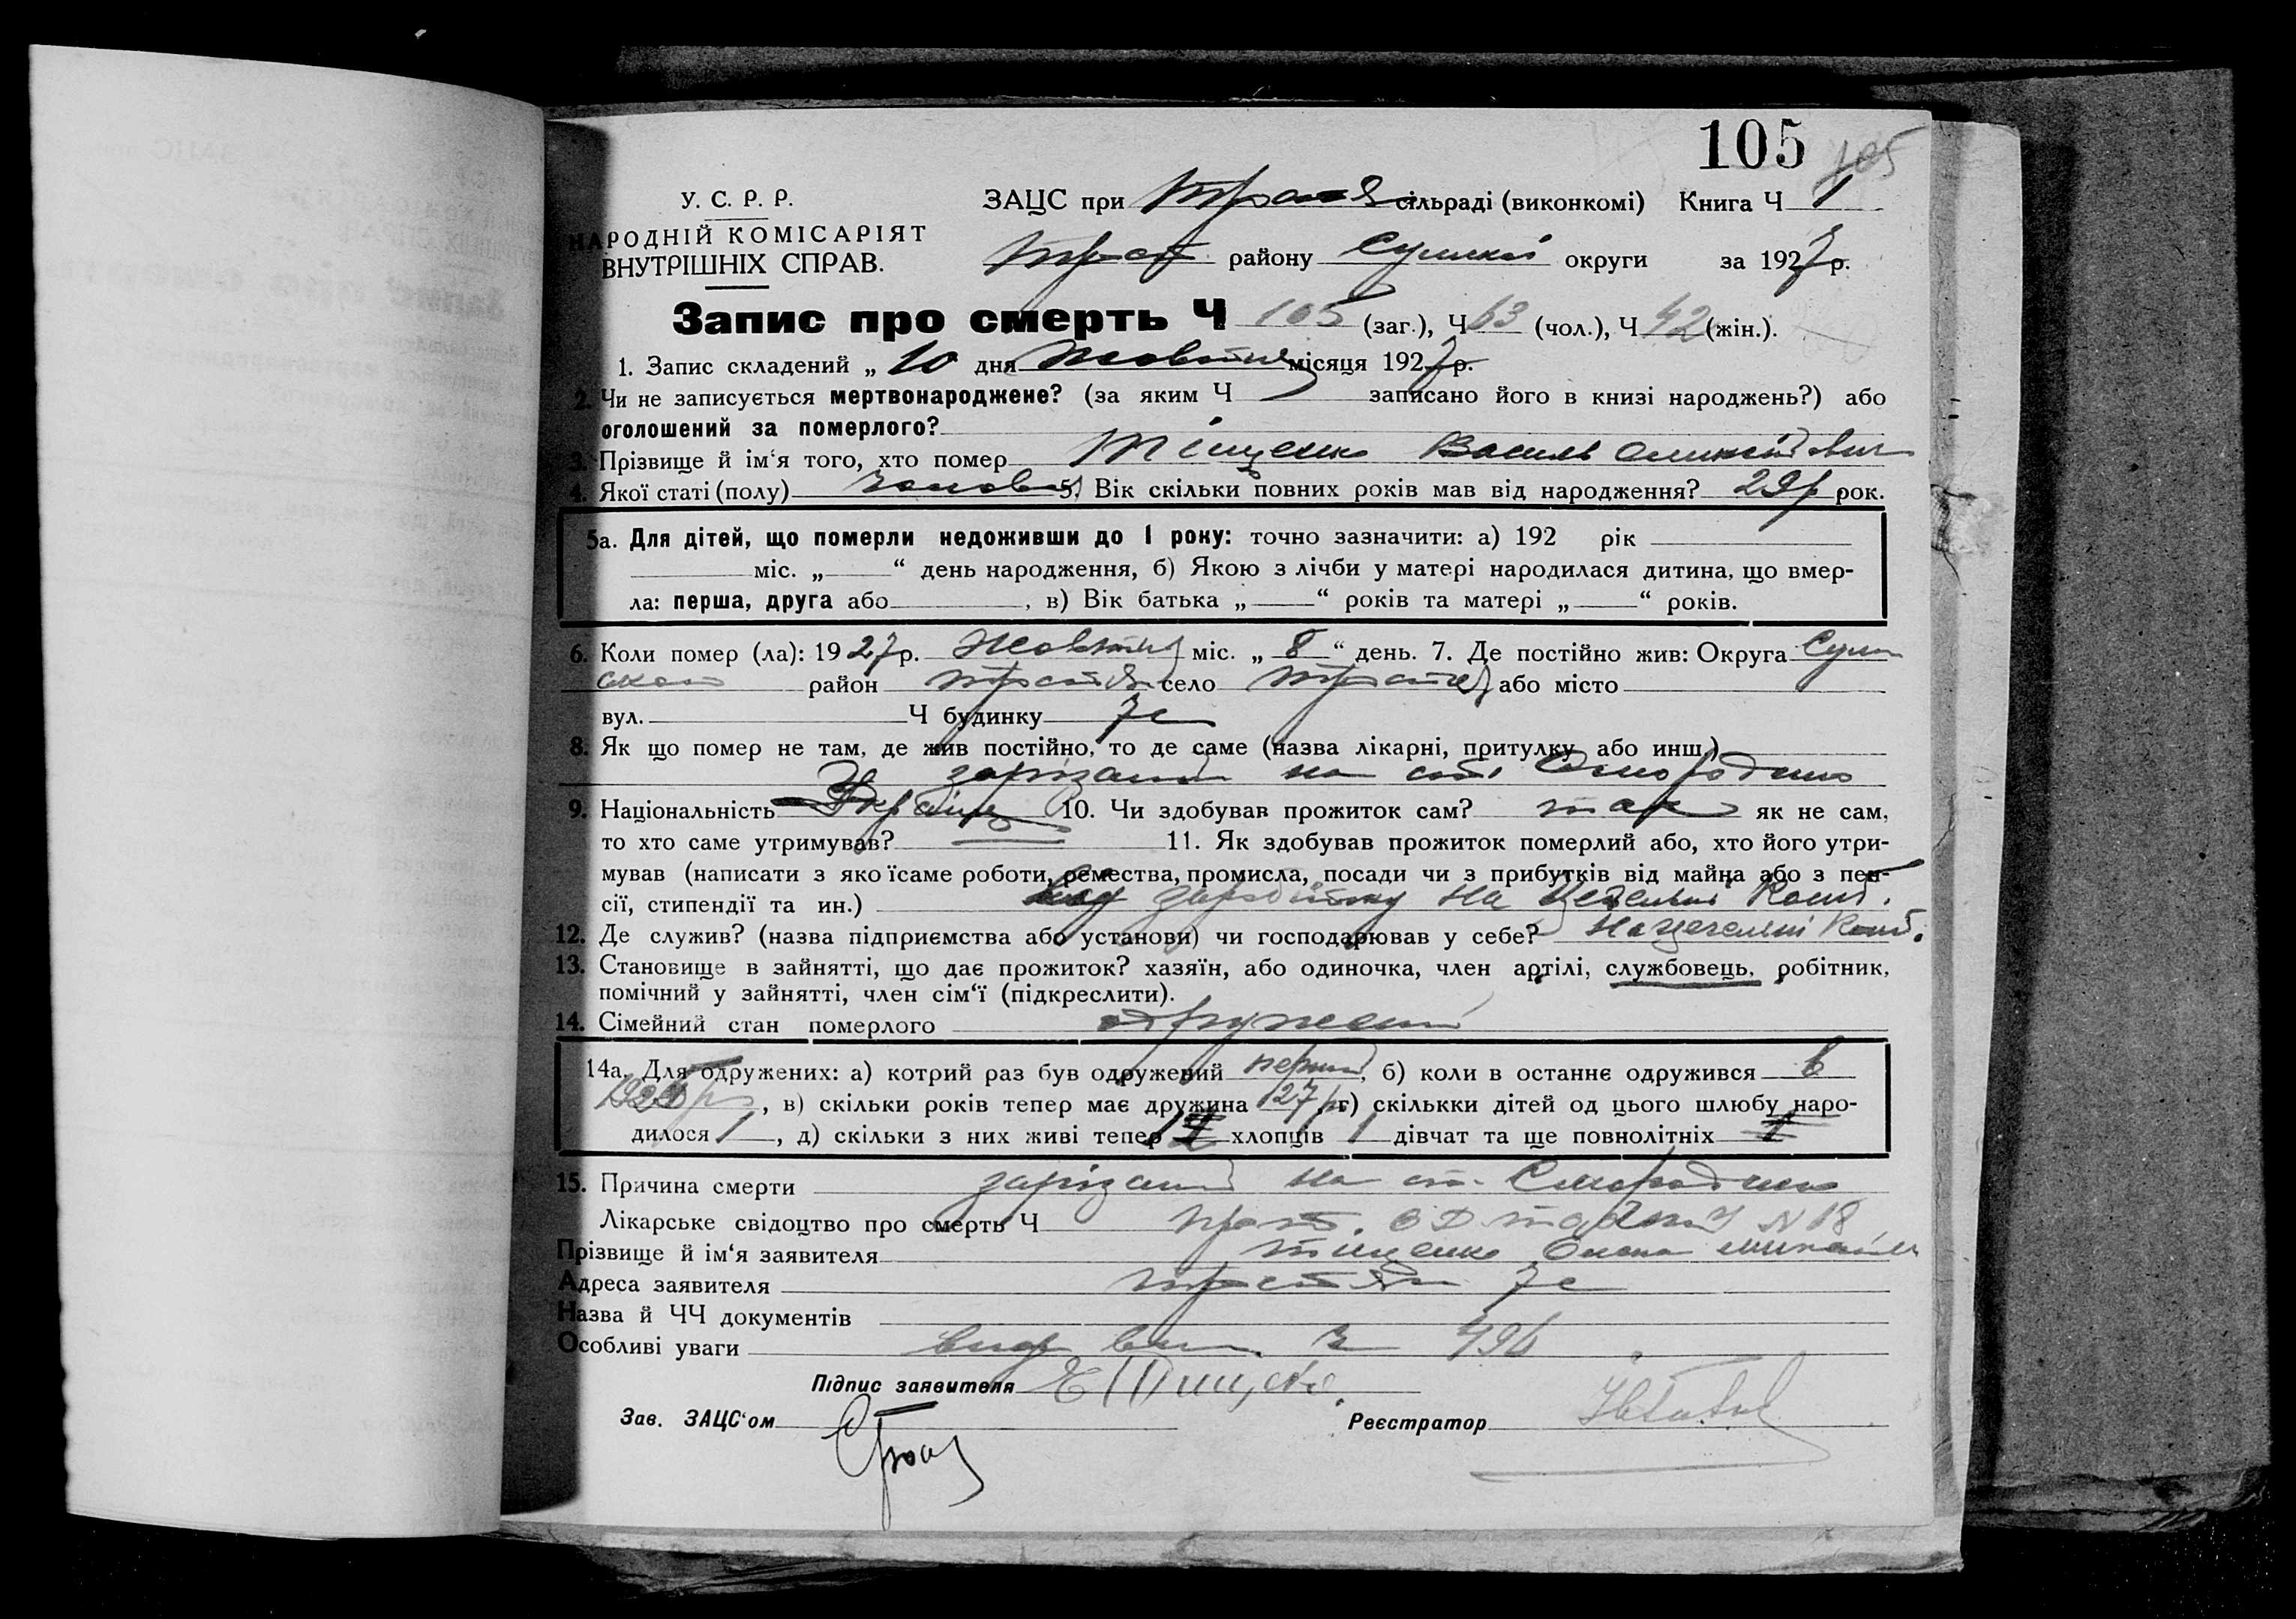 105
105
У. С. Р. Р.
НАРОДНІЙ КОМІСАРІЯТ
ВНУТРІШНІХ СПРАВ.
ЗАЦС при сільраді (виконкомі) Книга Ч 1
району Сумської округи за 1927 р.
Запис про смерть Ч 105 (заг.), Ч 63 (чол.), Ч 42 (жін.).
1. Запис складений „ 10 дня Жовтня місяця 1927 р.
2. Чи не записується мертвонароджене? (за яким Ч записано його в книзі народжень?) або
оголошений за померлого?
3. Прізвище й ім'я того, хто помер Тищенко Василь
4. Якої статі (полу) чолов 5. Вік скільки повних років мав від народження? 29 р рок.
5а. Для дітей, що померли недоживши до 1 року: точно зазначити: а) 192 рік
міс. „ “ день народження, б) Якою з лічби у матері народилася дитина, що вмер-
ла: перша, друга або , в) Вік батька „ “ років та матері „ “ років.
6. Коли помер (ла): 1927 р. Жовтня міс. „ 8 “ день. 7. Де постійно жив: Округа Сум
ская район село або місто
вул. Ч будинку 7с
8. Як що помер не там, де жив постійно, то де саме (назва лікарні, притулку або инш.)
зарізаний на ст. Смородино
9. Національність Україн 10. Чи здобував прожиток сам? так як не сам,
то хто саме утримував? 11. Як здобував прожиток померлий або, хто його утри-
мував (написати з якоїсаме роботи, ремества, промисла, посади чи з прибутків від майна або з пен-
сії, стипендії та ин.) заробітку на Цегельні Комб.
12. Де служив? (назва підприємства або установи) чи господарював у себе? На цегельні Комб.
13. Становище в зайнятті, що дає прожиток? хазяїн, або одиночка, член артілі, службовець, робітник,
помічний у зайнятті, член сім'ї (підкреслити).
14. Сімейний стан померлого одружений
14а. Для одружених: а) котрий раз був одружений перший, б) коли в останнє одружився в
р , в) скільки років тепер має дружина 27 р г) скількки дітей од цього шлюбу наро-
дилося 1 , д) скільки з них живі тепер хлопців 1 дівчат та ще повнолітніх
15. Причина смерти зарізаний на ст. Смородино
Лікарське свідоцтво про смерть Ч N 18
Прізвище й ім'я заявителя Тищенко
Адреса заявителя 7с
Назва й ЧЧ документів
Особливі уваги 496
Підпис заявителя
Зав. ЗАЦС'ом Реєстратор